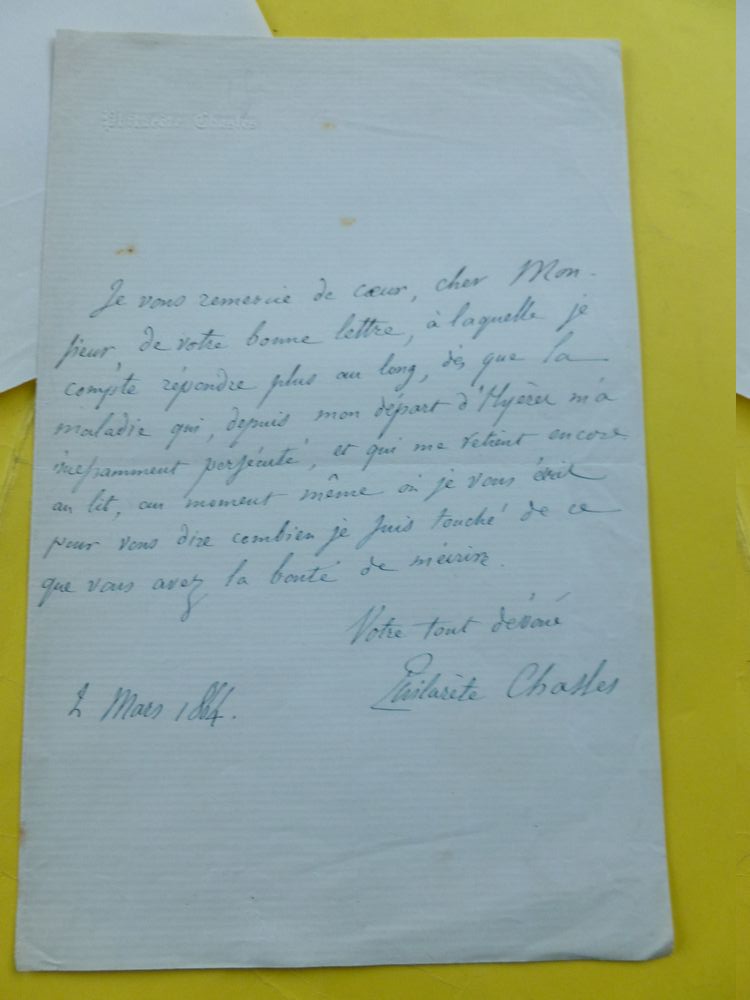 Philarète Chasles
Je vous remercie de cœur, cher Mon-
sieur, de votre bonne lettre, à laquelle je
compte répondre plus au long, dès que la
maladie qui, depuis mon départ d'Hyères m'a
incessamment persécuté, et qui me retient encore
au lit, au moment même où je vous écris
pour vous dire combien je suis touché de ce
que vous avez la bonté de m'écrire.
Votre tout dévoué
Philarète Chasles
2 Mars